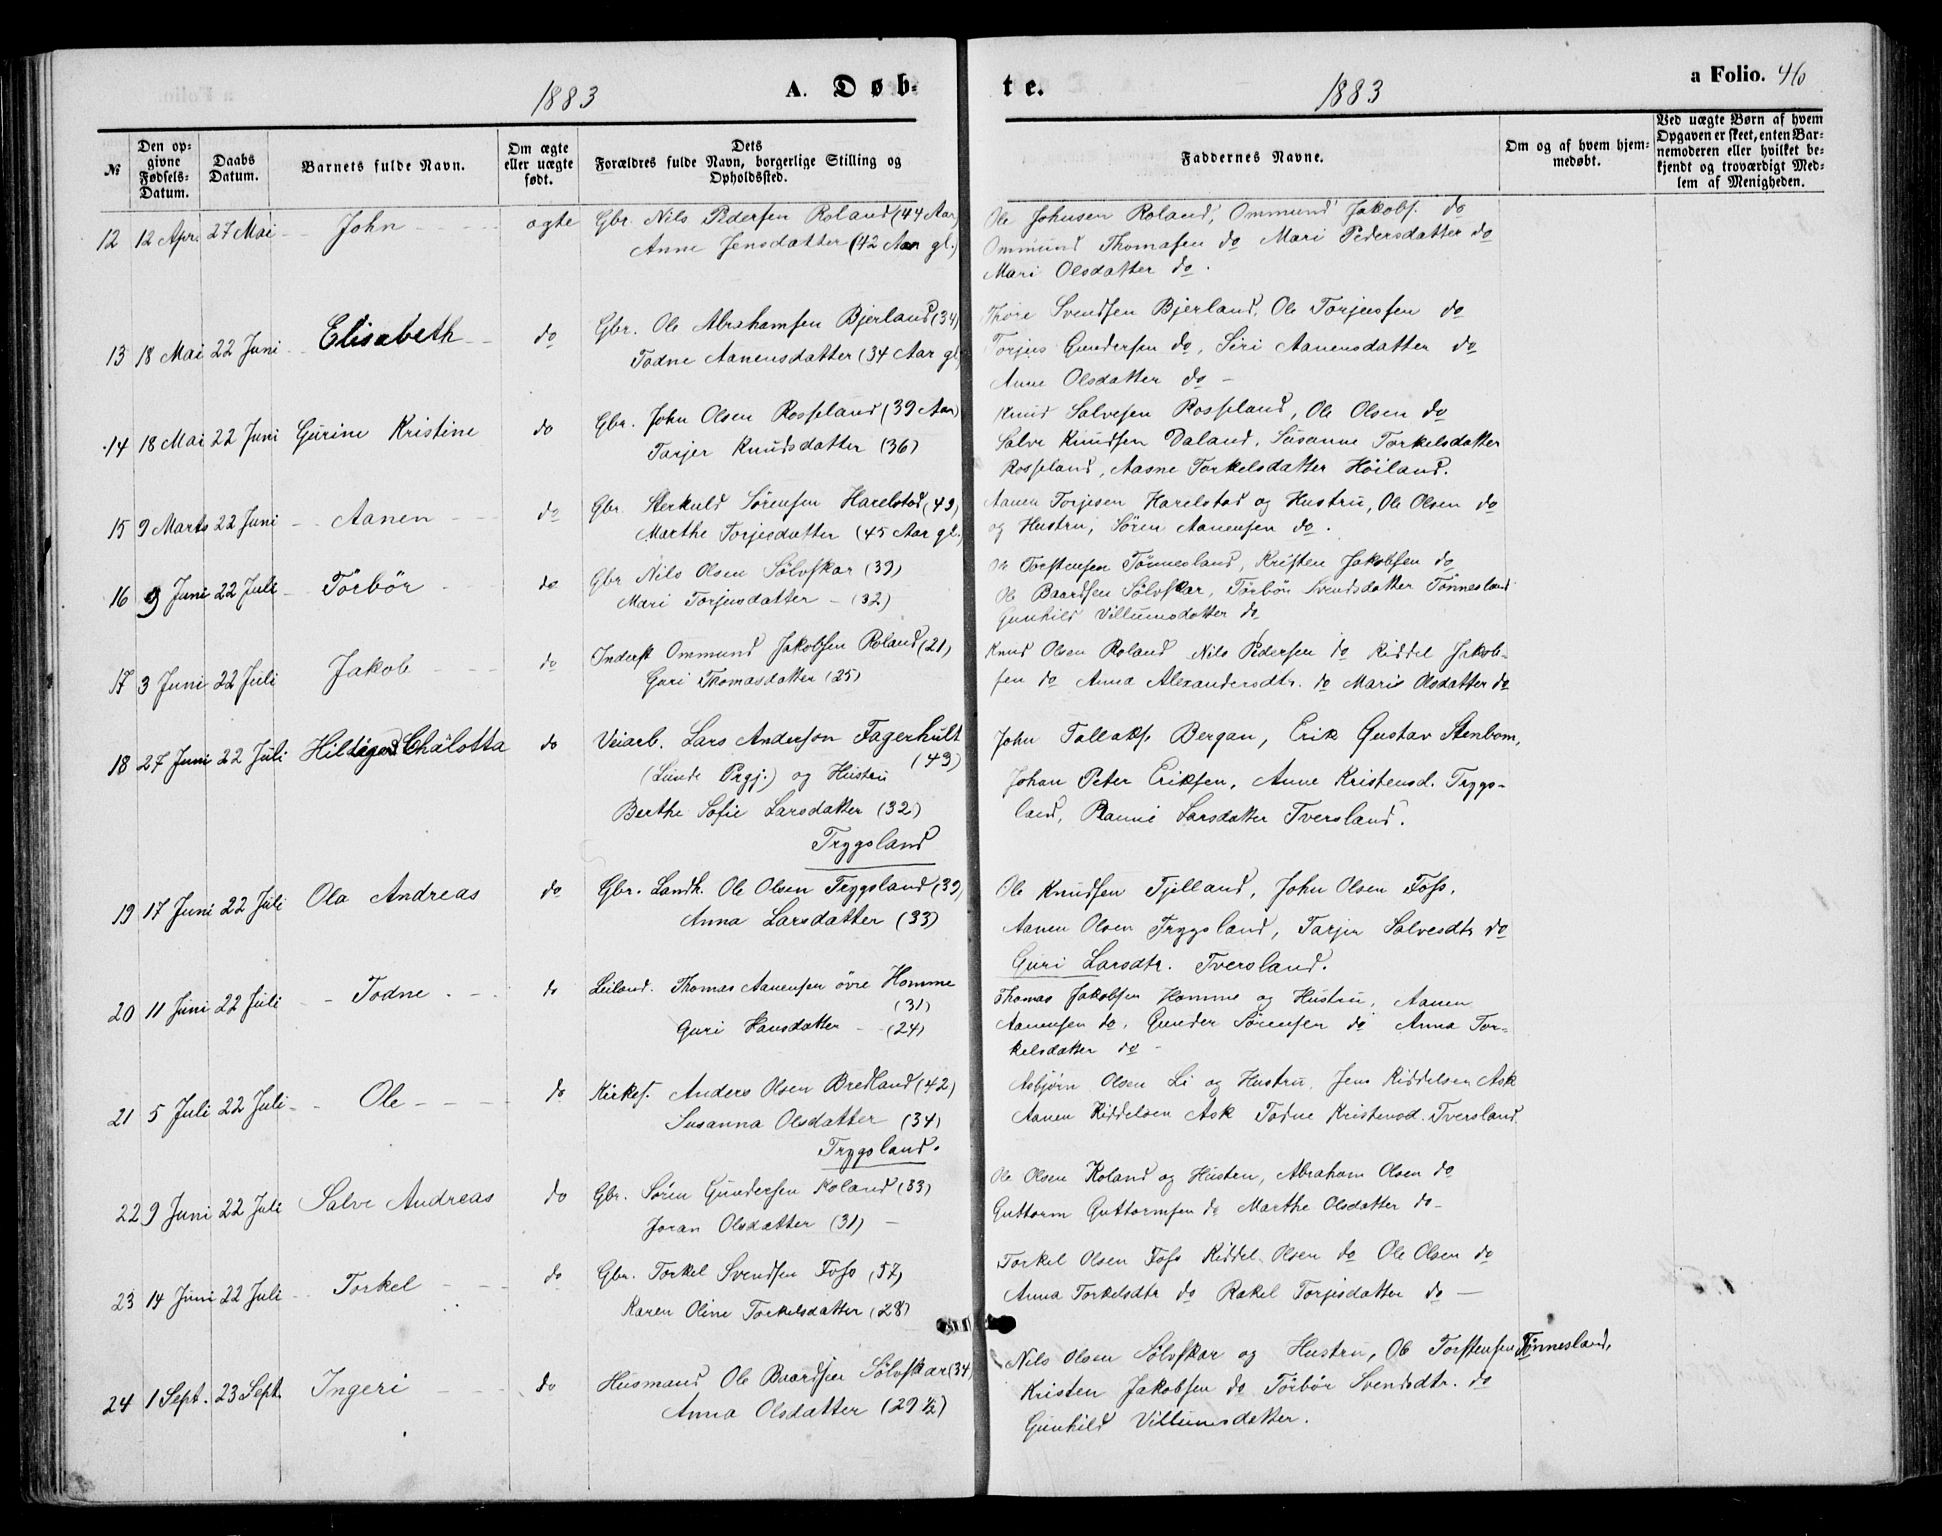 1883 A. Døb-
te. 1883 a Folio. 46
№ Den op-givne Fødsels-Datum. Daabs Datum. Barnets fulde Navn. Om ægte eller uægte født. Dets Forældres fulde Navn, borgerlige Stilling og Opholdssted.
Faddernes Navne. Om og af hvem hjem-medøbt. Ved uægte Børn af hvem Opgaven er skeet, enten Bar-nemoderen eller hvilket be-kjendt og troværdigt Med-lem af Menigheden.
12 12 Apr. 27 Mai John ægte Gbr. Nils Pedersen Roland (44 Aar)
Anne Jensdatter (42 Aar gl.)
Ole Johnsen Roland, Ommund Jakobs. do
Ommund Thomasen do Mari Pedersdatter do
Mari Olsdatter do.
13 18 Mai 22 Juni Elisabeth do Gbr. Ole Abrahamsen Bjerland (34)
Todne Aanensdatter (34 Aar gl)
Thore Svendsen Bjerland, Ole Torjussen do
Torjus Gundersen do, Siri Aanensdatter do
Anne Olsdatter do -
14 18 Mai 22 Juni Gurine Kristine do Gbr. John Olsen Rosseland (39 Aar)
Tarjer Knudsdatter (36)
Knud Salvesen Rosseland, Ole Olsen do
Salve Knudsen Daland, Susanne Torkelsdatter
Rosseland, Aasne Torkelsdatter Höiland.
15 9 Marts 22 Juni Aanen do Gbr. Sterkuld Sørensen Harelstad (49)
Marthe Torjesdatter (45 Aar gl.
Aanen Torjesen Harelstad og Hustru, Ole Olsen do
og Hustru, Sören Aanensen do.
16 9 Juni 22 Juli Törbör do Gbr Nils Olsen Sölvskar (39)
Mari Torjusdatter - (32)
Ole Torstensen Tönnesland, Kristen Jakobsen do
Ole Baardsen Sölvskar, Törbör Svendsdatter Tönnesland
Gunhild Villumsdatter do
17 3 Juni 22 Juli Jakob do Inderst Ommund Jakobsen Roland (21)
Guri Thomasdatter (25)
Knud Olsen Roland Nils Pedersen do Kiddel Jakob-
sen do Anna Alexandersdtr. do Marie Olsdatter do
18 27 Juni 22 Juli Hiltigerd Chälotta do Veiarb. Lars Anderson Fagerhult
(Lunde Prgj.) og Hustru (43)
Berthe Sofie Larsdatter (32)
Trygsland
John Tallaks. Bergan, Erik Gustav Stenbom,
Johan Peter Eriksen, Anne Kristensd. Trygs-
land, Ranni Larsdatter Tversland.
19 17 Juni 22 Juli Ola Andreas do Gbr. Landh. Ole Olsen Trygsland (39)
Anna Larsdatter (33)
Ole Knudsen Tjelland, John Olsen Foss,
Aanen Olsen Trygsland, Tarjer Salvesdtr do
Guri Larsdtr. Tversland.
20 11 Juni 22 Juli Todne do Leiland. Thomas Aanensen övre Homme
(31)
Guri Hansdatter - (24)
Thomas Jakobsen Homme og Hustru, Aanen
Aanensen do, Gunder Sörensen do Anna Tor-
kelsdatter do -
21 5 Juli 22 Juli Ole do Kirkes. Anders Olsen Bredland (42)
Susanna Olsdatter (34)
Trygsland.
Asbjörn Olsen Li og Hustru, Jens Kiddelsen Ask
Aanen Kiddelsen Ask Todne Kristensd. Tversland.
22 9 Juni 22 Juli Salve Andreas do Gbr. Sören Gundersen Roland (33)
Joran Olsdatter (31) -
Ole Olsen Roland og Hustru, Abraham Olsen do
Guttorm Guttormsen do Marthe Olsdatter do -
23 14 Juni 22 Juli Torkel do Gbr. Torkel Svendsen Foss (57)
Karen Oline Torkelsdatter (28)
Torkel Olsen Foss Kiddel Olsen do Ole Olsen do
Anna Torkelsdtr do Rakel Torjusdatter do -
24 1 Sept. 23 Sept. Ingeri do Husmand Ole Baardsen Sölvskar (34)
Anna Olsdatter (29 1/2)
Nils Olsen Sölvskar og Hustru, Ole Torstensen Tönnesland,
Kristen Jakobsen do Törbör Svendsdtr. do
Gunhild Villumsdatter.